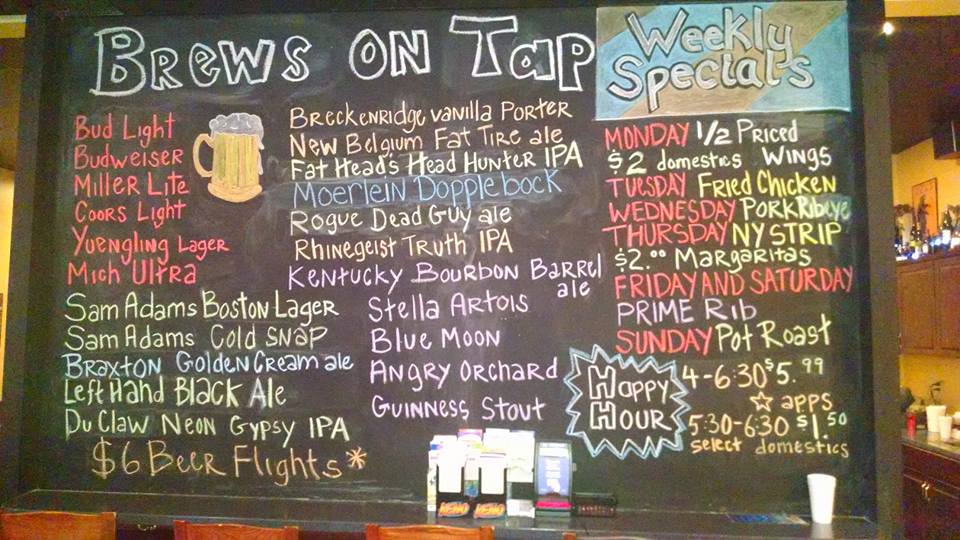 Brews on Tap
Bud Light
Budweiser
Miller Lite
Coors Light
Yuengling Lager
Mich Ultra
Sam Adams Boston Lager
Sam Adams Cold Snap
Braxton Golden Cream ale
Left Hand Black Ale
Du Claw Neon Gypsy IPA
$6 Beer Flights*
Breckenridge vanilla Porter
New Belgium Fat Tire ale
Fat Head's Head Hunter IPA
Moerlein Dopplebock
Rogue Dead Guy ale
Rhinegeist Truth IPA
Kentucky Bourbon Barrel
ale
Stella Artois
Blue Moon
Angry Orchard
Guinness Stout
Weekly
Special's
MONDAY 1/2 Priced
$2 domestics Wings
TUESDAY Fried Chicken
WEDNESDAY Pork Ribeye
THURSDAY NY STRIP
$2.00 Margaritas
FRIDAY AND SATURDAY
PRIME Rib
SUNDAY Pot Roast
Happy
Hour
4-6:30 $5.99
☆ apps
5:30-6:30 $1.50
select domestics
KENO KENO